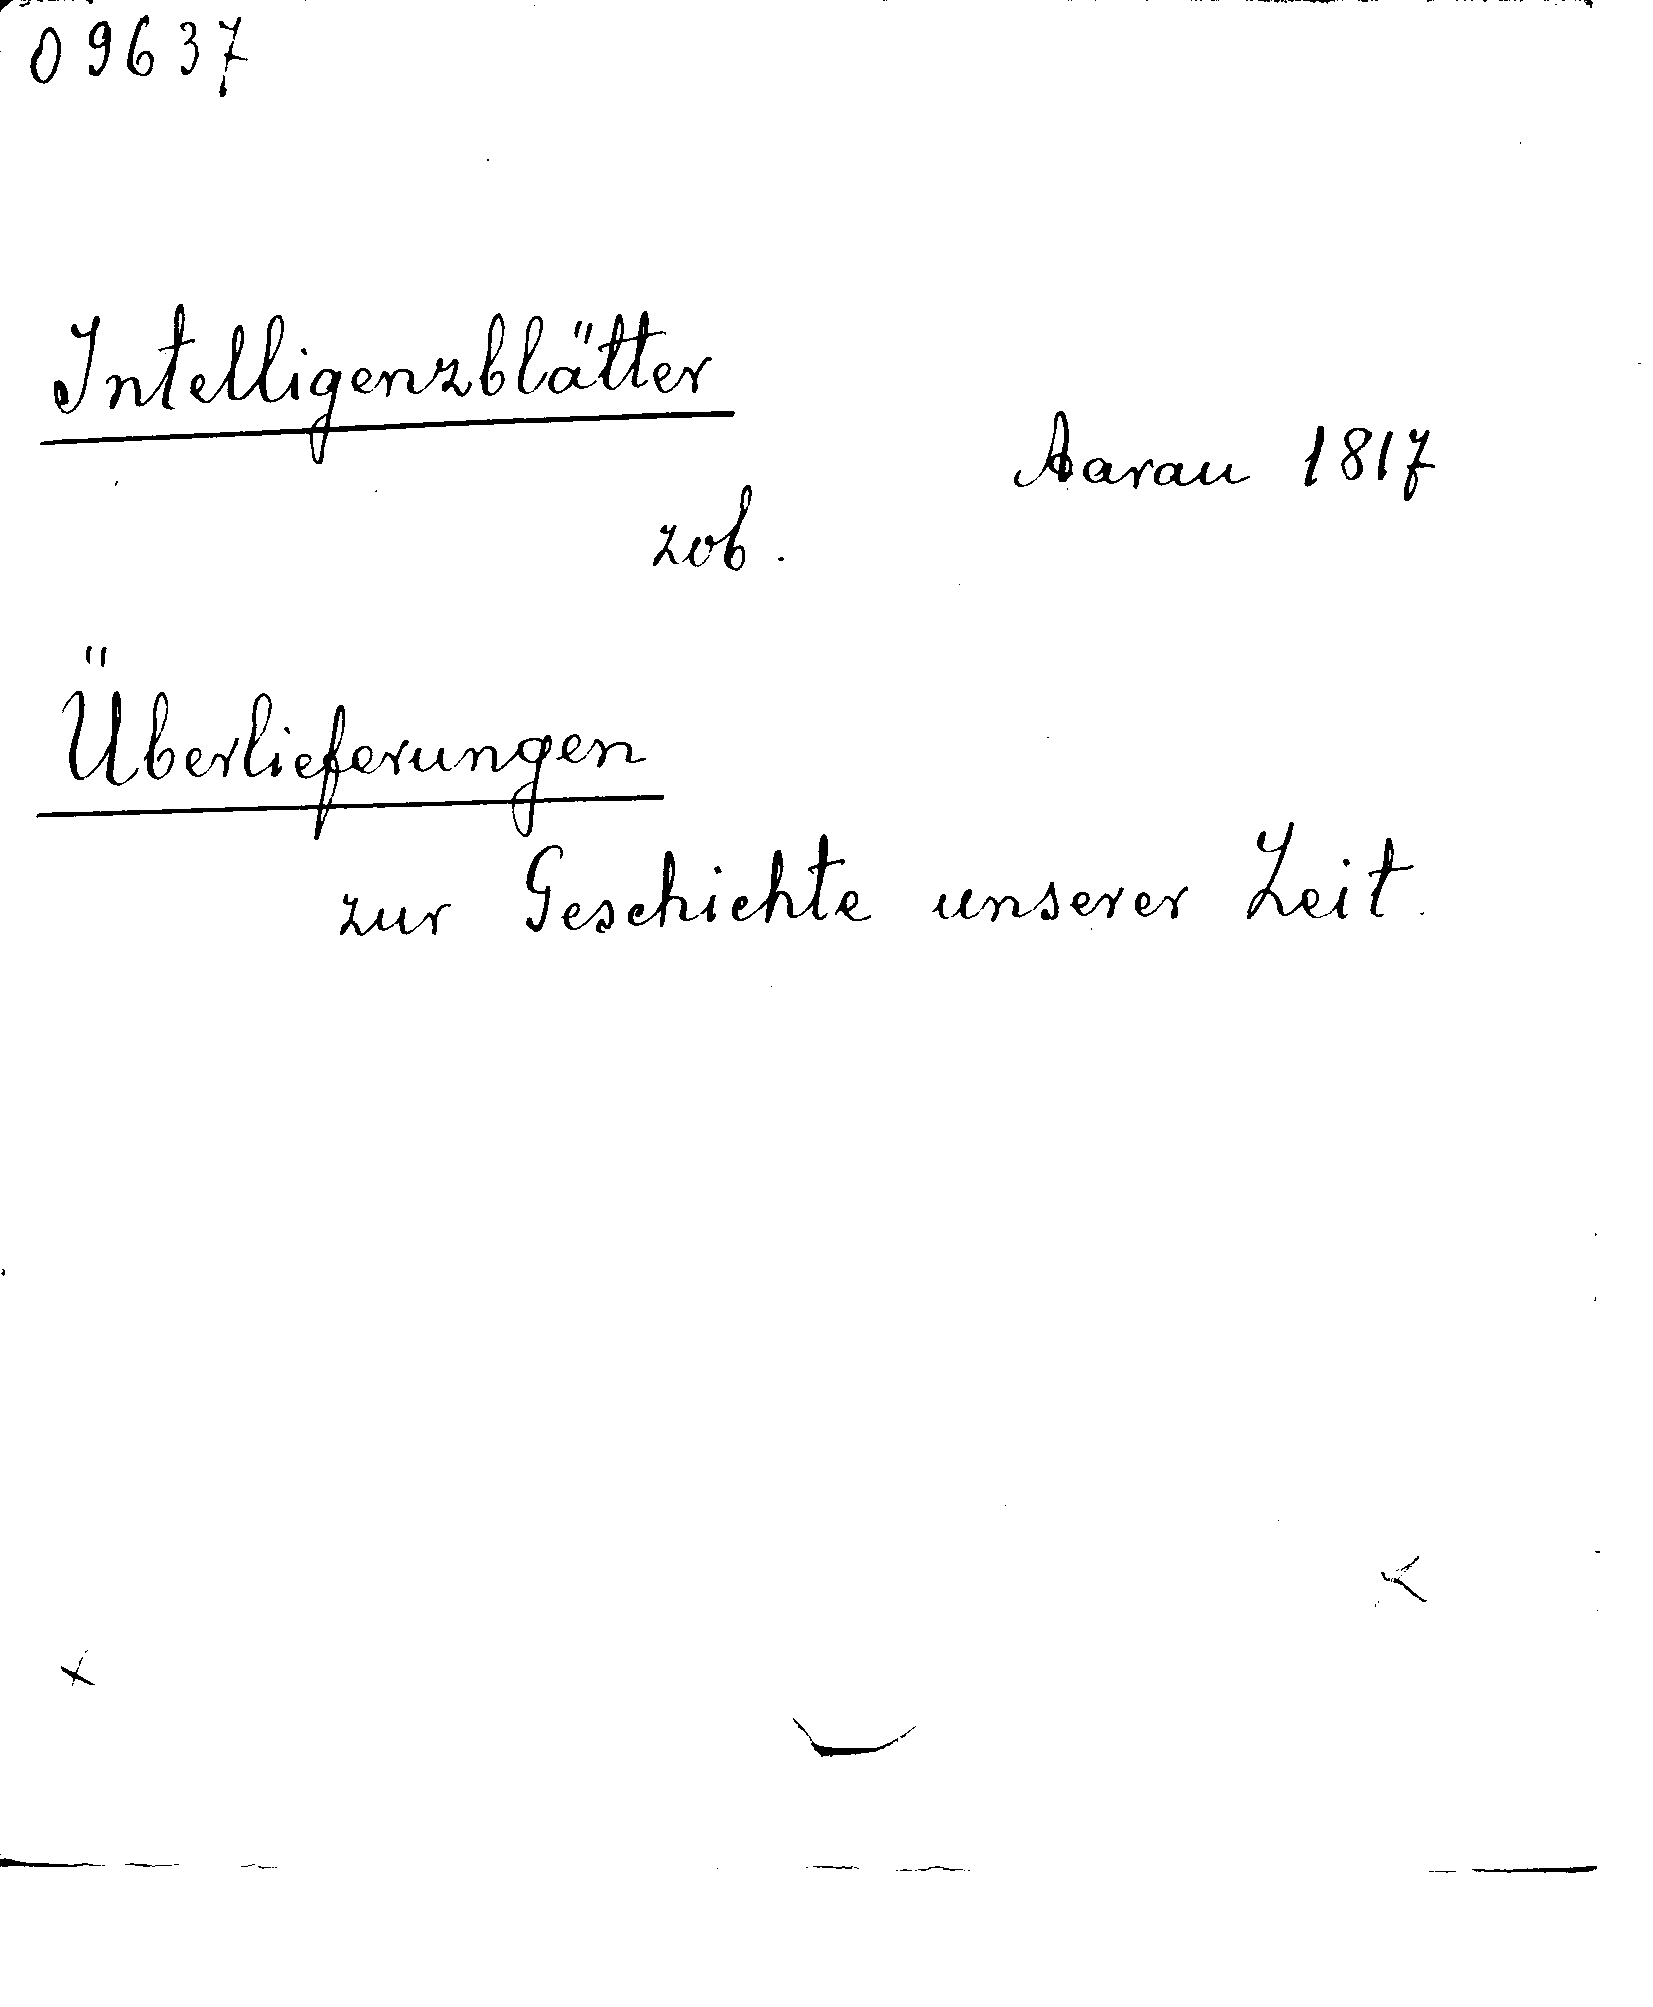 09637
Intelligenzblätter
Aarau 1817
zob.
Überlieferungen
zur Geschichte unserer Zeit.